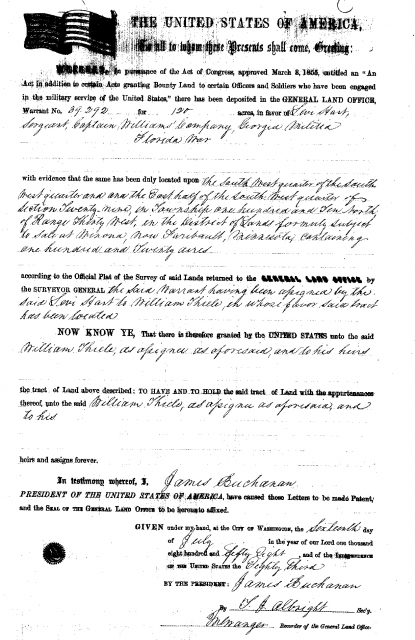 THE UNITED STATES OF AMERICA,
To all to whom these Presents shall come, Greeting:
WHEREAS, In pursuance of the Act of Congress, approved March 3, 1855, entitled an "An
Act in addition to certain Acts granting Bounty Land to certain Officers and Soldiers who have been engaged
in the military service of the United States," there has been deposited in the GENERAL LAND OFFICE,
Warrant No. 39.292 for 120 acres, in favor of Levi Hart,
Sergeant, Captain Williams' Company, Georgia Militia
Florida War
with evidence that the same has been duly located upon the South West quarter of the South
West quarter and and the East half of the South West quarter of
Section Twenty nine, in Township one hundred and Ten North
of Range Thirty West, in the District of Lands formerly subject
to sale at Winona, now Faribault, Minnesota, containing
one hundred and Twenty acres
according to the Official Plat of the Survey of said Lands returned to the GENERAL LAND OFFICE by
the SURVEYOR GENERAL the said Warrant having been assigned by the
said Levi Hart to William Thiele, in whose favor said tract
has been located
NOW KNOW YE, That there is therefore granted by the UNITED STATES unto the said
William Thiele, as assignee as aforesaid, and to his heirs
the tract of Land above described: TO HAVE AND TO HOLD the said tract of Land with the appurtenances
thereof, unto the said William Thiele, as assignee as aforesaid, and
to his
heirs and assigns forever.
In testimony whereof, I, James Buchanan
PRESIDENT OF THE UNITED STATES OF AMERICA, have caused these Letters to be made Patent,
and the SEAL OF THE GENERAL LAND OFFICE to be hereunto affixed.
GIVEN under my hand, at the CITY OF WASHINGTON, the Sixteenth day
of July in the year of our Lord one thousand
eight hundred and Fifty Eight, and of the INDEPENDENCE
OF THE UNITED STATES the Eighty Third
BY THE PRESIDENT: James Buchanan
By T. J. Albright Sec'y.
Recorder of the General Land Office.